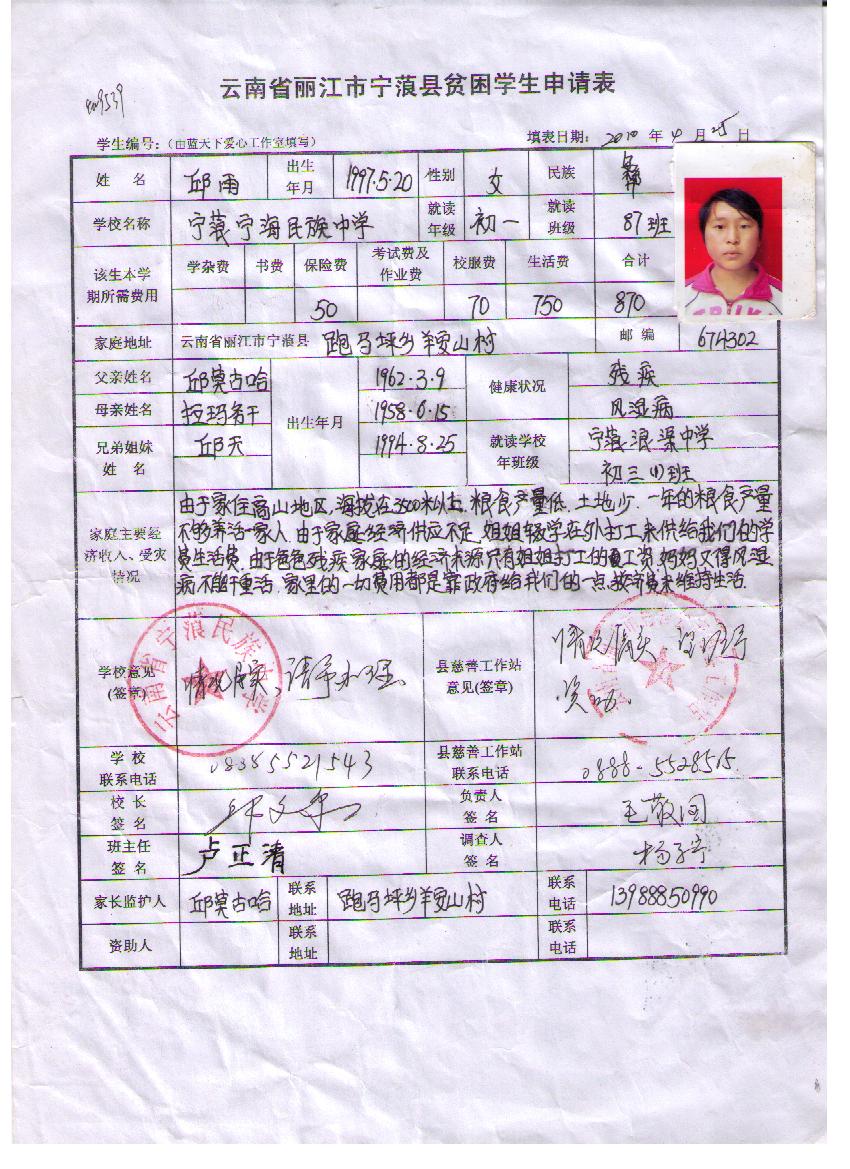 云南省丽江市宁蒗县贫困学生申请表
学生编号：（由蓝天下爱心工作室填写） 填表日期：2010年4月25日
姓 名 邱雨 出生年月 1997.5.20 性别 女 民族 彝
学校名称 宁蒗宁海民族中学 就读年级 初一 就读班级 87班
该生本学期所需费用 学杂费 书费 保险费 考试费及作业费 校服费 生活费 合计
50 70 750 870
家庭地址 云南省丽江市宁蒗县 跑马坪乡羊窝山村 邮 编 674302
父亲姓名 邱莫古哈 出生年月 1962.3.9 健康状况 残疾
母亲姓名 拉玛务干 1958.6.15 风湿病
兄弟姐妹姓 名 邱天 1994.8.25 就读学校年班级 宁蒗浪渠中学
初三(1)班
家庭主要经济收入、受灾情况
由于家住高山地区,海拔在3500米以上,粮食产量低.土地少.一年的粮食产量
不够养活一家人.由于家庭经济供应不足,姐姐辍学在外打工来供给我们的学
费生活费.由于爸爸残疾家庭的经济来源只有姐姐打工的工资,妈妈又得风湿
病,不能干重活.家里的一切费用都是靠政府给我们的一点救济费来维持生活.
学校意见(签章) 情况属实、请予办理。 县慈善工作站意见(签章) 情况属实
资助。
学 校联系电话 08885521543 县慈善工作站联系电话 0888-5528515
校 长签 名 负责人签 名 王敬国
班主任签 名 卢正清 调查人签 名
家长监护人 邱莫古哈 联系地址 跑马坪乡羊窝山村 联系电话 13988850990
资助人 联系地址 联系电话